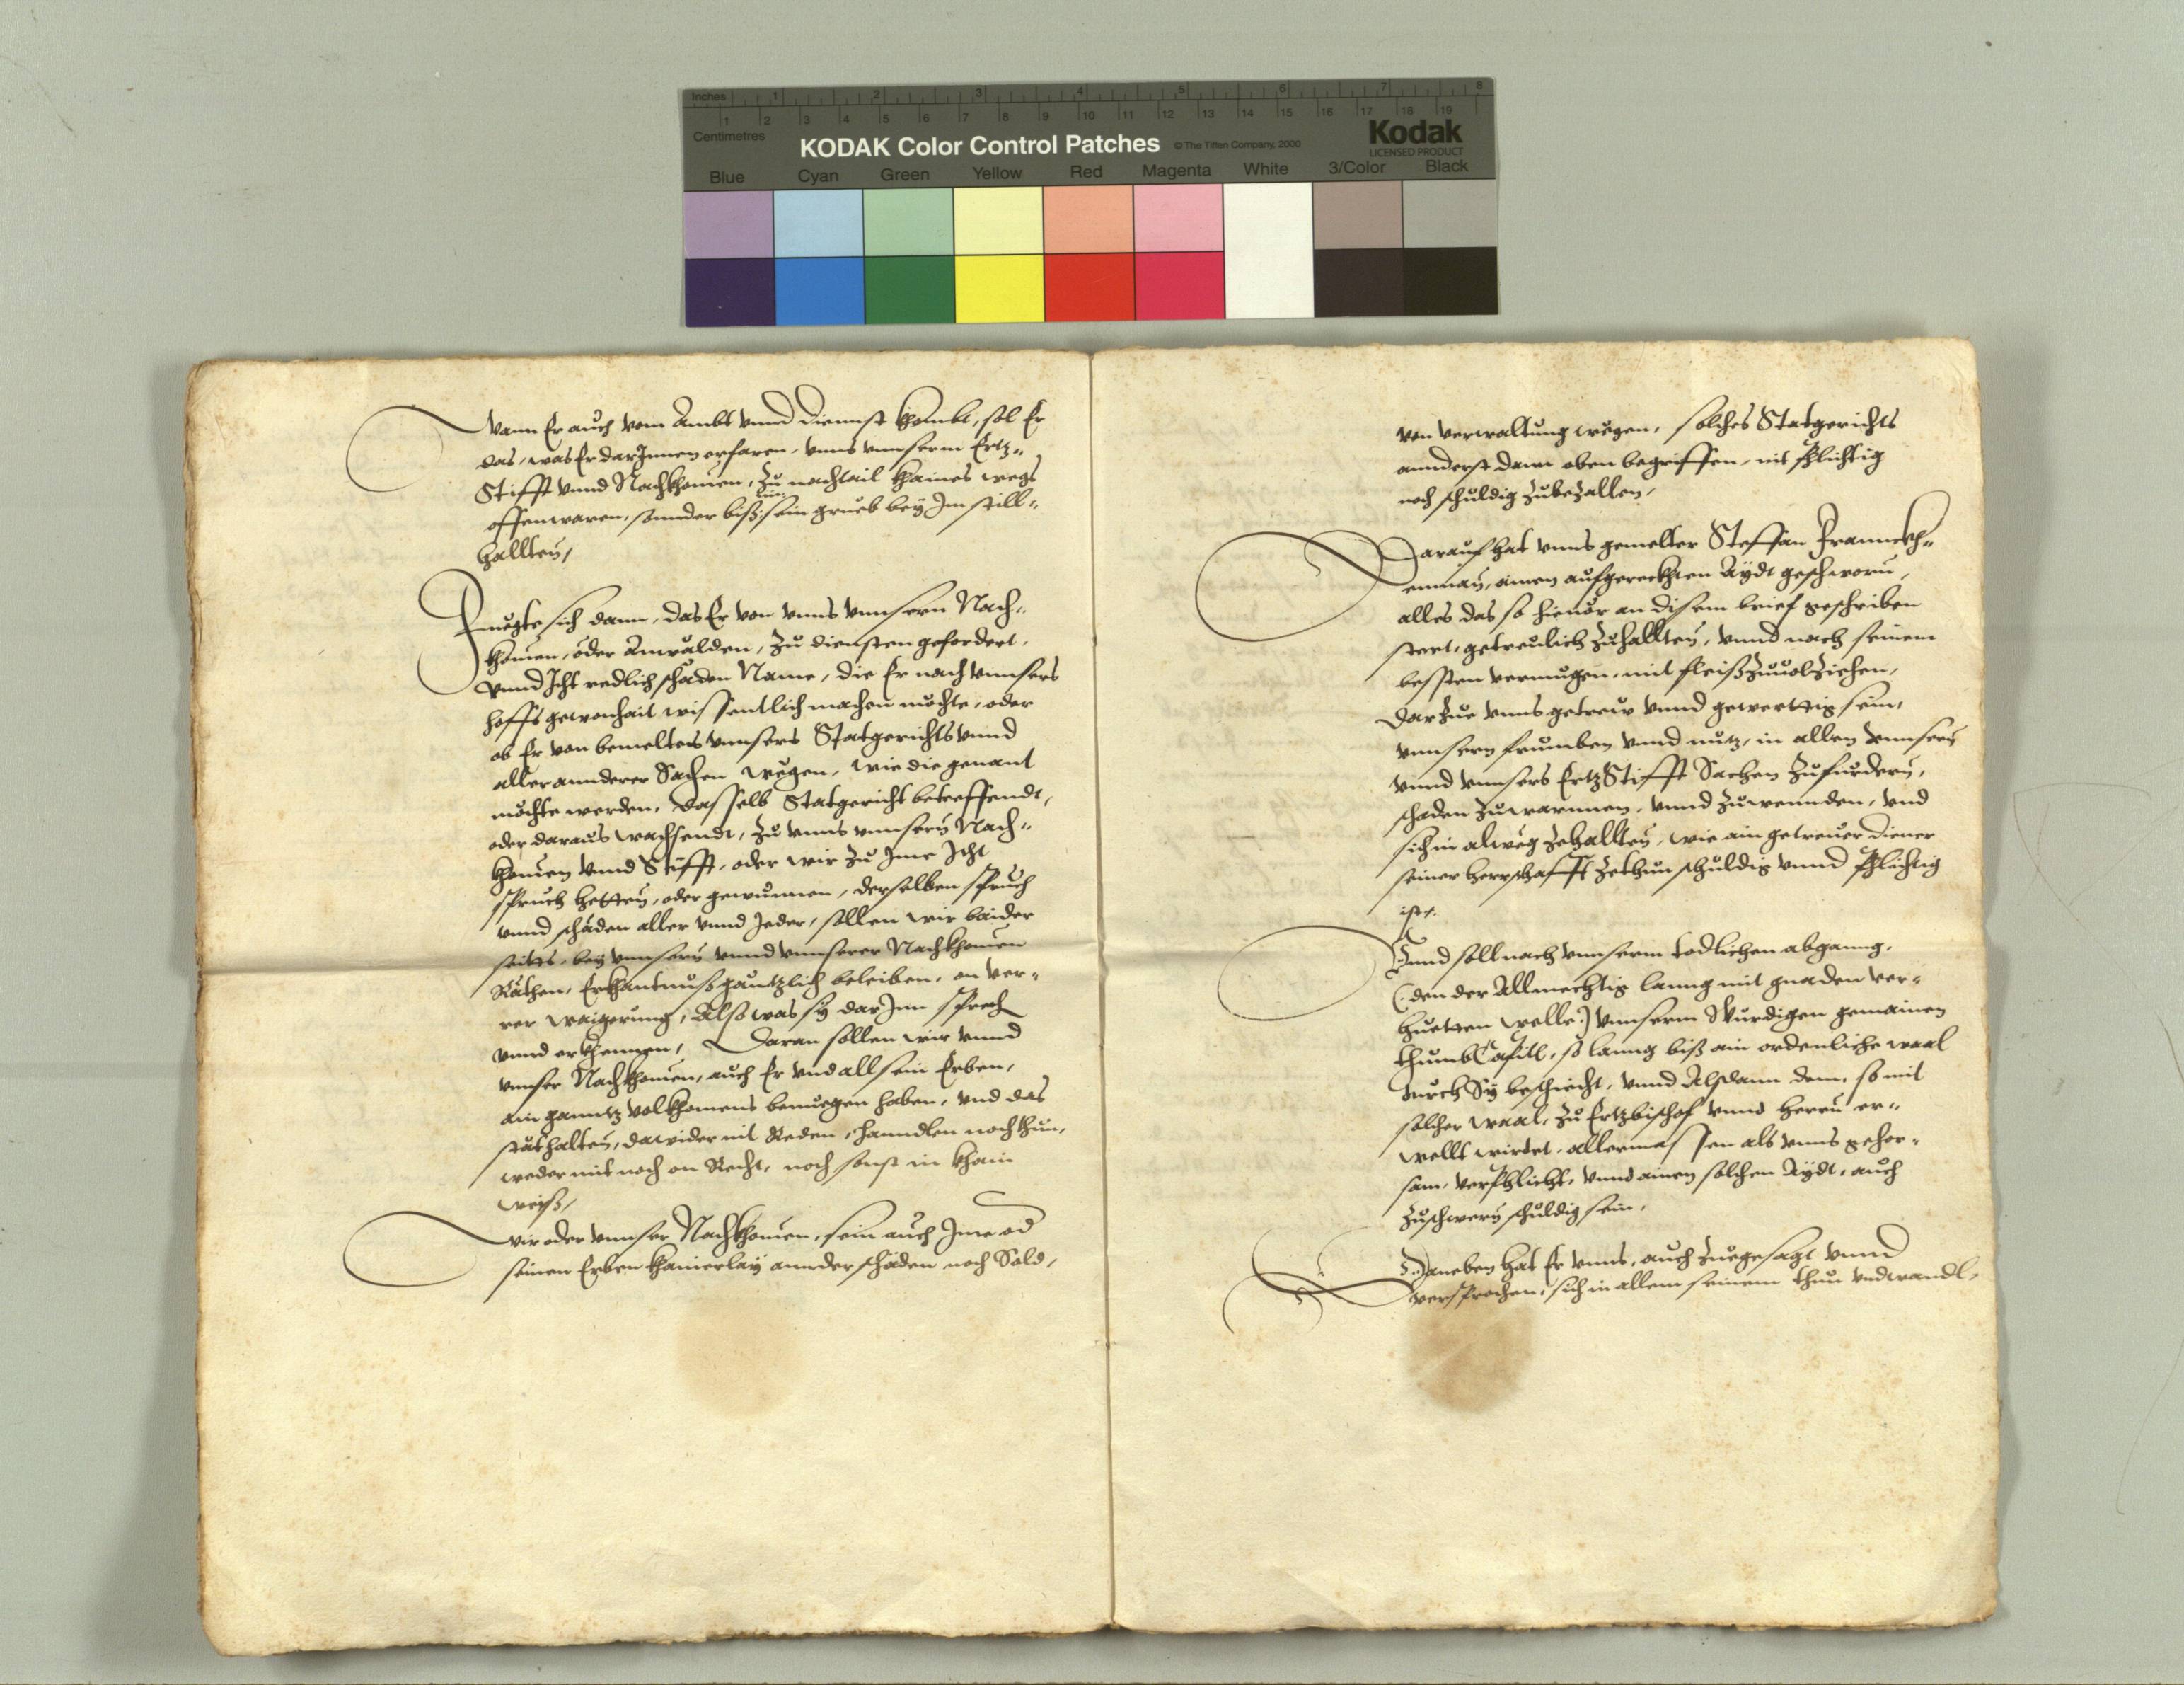 Inches 1 2 3 4 5 6 7 8
Centimetres 1 2 3 4 5 6 7 8 9 10 11 12 13 14 15 16 17 18 19
KODAK Color Control Patches © The Tiffen Company, 2000 Kodak
LICENSED PRODUCT
Blue Cyan Green Yellow Red Magenta White 3/Color Black
Wann Er auch vom Ambt vnnd Diennst khombt, sol Er
das, was Er darJnnen erfaren, vnns vnnserm Ertz-
Stifft vnnd Nachkhomen, zu nachtail khaines wegs
offenwaren, sonnder biß inn sein grueb bey Jm still-
hallten,
Fuegte sich dann, das Er von vnns vnnsern Nach-
khomen, oder Anwälden, zu diensten gefordert,
vnnd Icht redlich schäden Name, die Er nach vnnsers
hoffs gewonhait wissentlich machen möchte, oder
ob Er von bemeltes vnnsers Statgerichts vnnd
aller annderer Sachen wegen, wie die genant
möchte werden, dasselb Statgericht betreffendt,
oder daraus wachsendt, zu vnns vnnsern Nach-
khomen vnnd Stifft, oder wir zu Jme Icht
spruch hetten, oder gewunnen, derselben spruch
vnnd schäden aller vnnd Jeder, sollen wir baider
seitts, bey vnnsern vnnd vnnserer Nachkhomen
Räthen, Erkhantnuß gäntzlich beleiben, on ver-
rer waigerung, Also was sy darJnn sprech
vnnd erkhennen, Daran sollen wir vnnd
vnnser Nachkhomen, auch Er vnd all sein Erben,
ain ganntz volkhomens benuegen haben, vnd das
stät halten, dawider nit Reden, hanndlen noch thun,
weder mit noch on Recht, noch sonst in khain
weiß,
Wir oder vnnser Nachkhomen, sein auch Jme od
seinen Erben khainerlay annder schäden noch Sold,
von verwaltung wegen, solches Statgerichts
annderst dann oben begriffen, nit phlichtig
noch schuldig zubezallen,
Darauf hat vnns gemelter Steffan
ainen aufgereckhten Aydt geschworn,
alles das so hieuor an disem brief geschriben
steet, getreulich zuhallten, vnnd nach seinem
bessten vermugen, mit fleiß zuuolziehen,
Darzue vnns getrew vnnd gewerttig sein,
vnnsern frumben vnnd nutz, in allen vnnsern
vnnd vnnsers ErtzStiffts Sachen zufurdern,
schaden zuwarnnen, vnnd zuwennden, vnd
sich in alweg zehallten, wie ain getreuer diener
seiner herrschafft zethun schuldig vnnd phlichtig
ist.
Vnnd soll nach vnnserm todlichen abganng,
(: den der Allmechtig lanng mit gnaden ver-
huetten welle:) vnnserm Wurdigen gemainen
thumbCapitl, so lanng biß ain ordenliche waal
durch Sy beschiecht, vnnd Alsdann dem, so mit
solcher waal, zu Ertzbischof vnnd herrn er-
wellt wirdet, allermassen als vnns gehor-
sam, verphlicht, vnnd ainen solchen Aydt, auch
zuschwern schuldig sein,
Daneben hat Er vnns, auch zuegesagt vnnd
versprochen, sich in allem seinem thun vnd wandl,